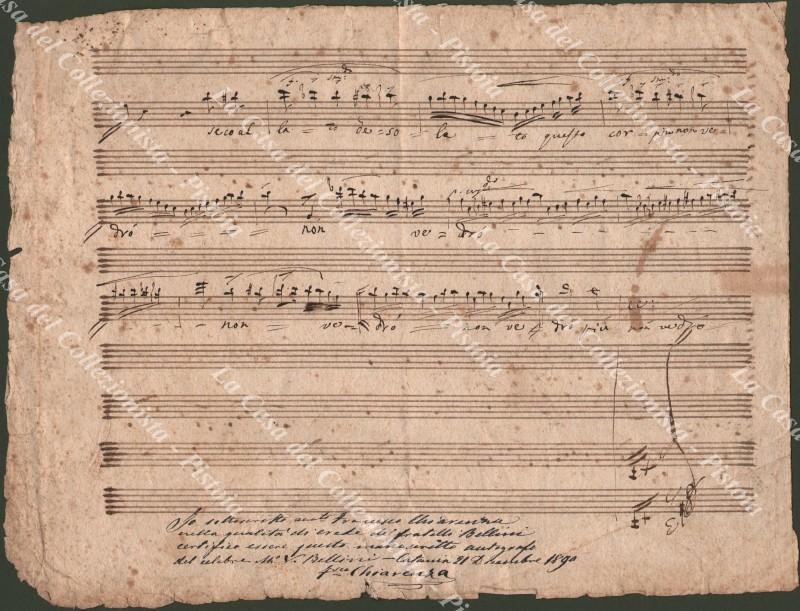 seco al la = to de = so = la = to questo cor = più non ve =
drò = = = = non ve = drò = - - - - -
- - - - non ve = drò = = non ve = drò più non vedrò
Io sottoscritto Francesco Chiarenza
nella qualità di erede dei fratelli Bellini
certifico essere questo manoscritto autografo
del celebre Mo. V. Bellini - Catania 21 Dicembre 1890
Chiarenza
La Casa del Collezionista - Pistoia